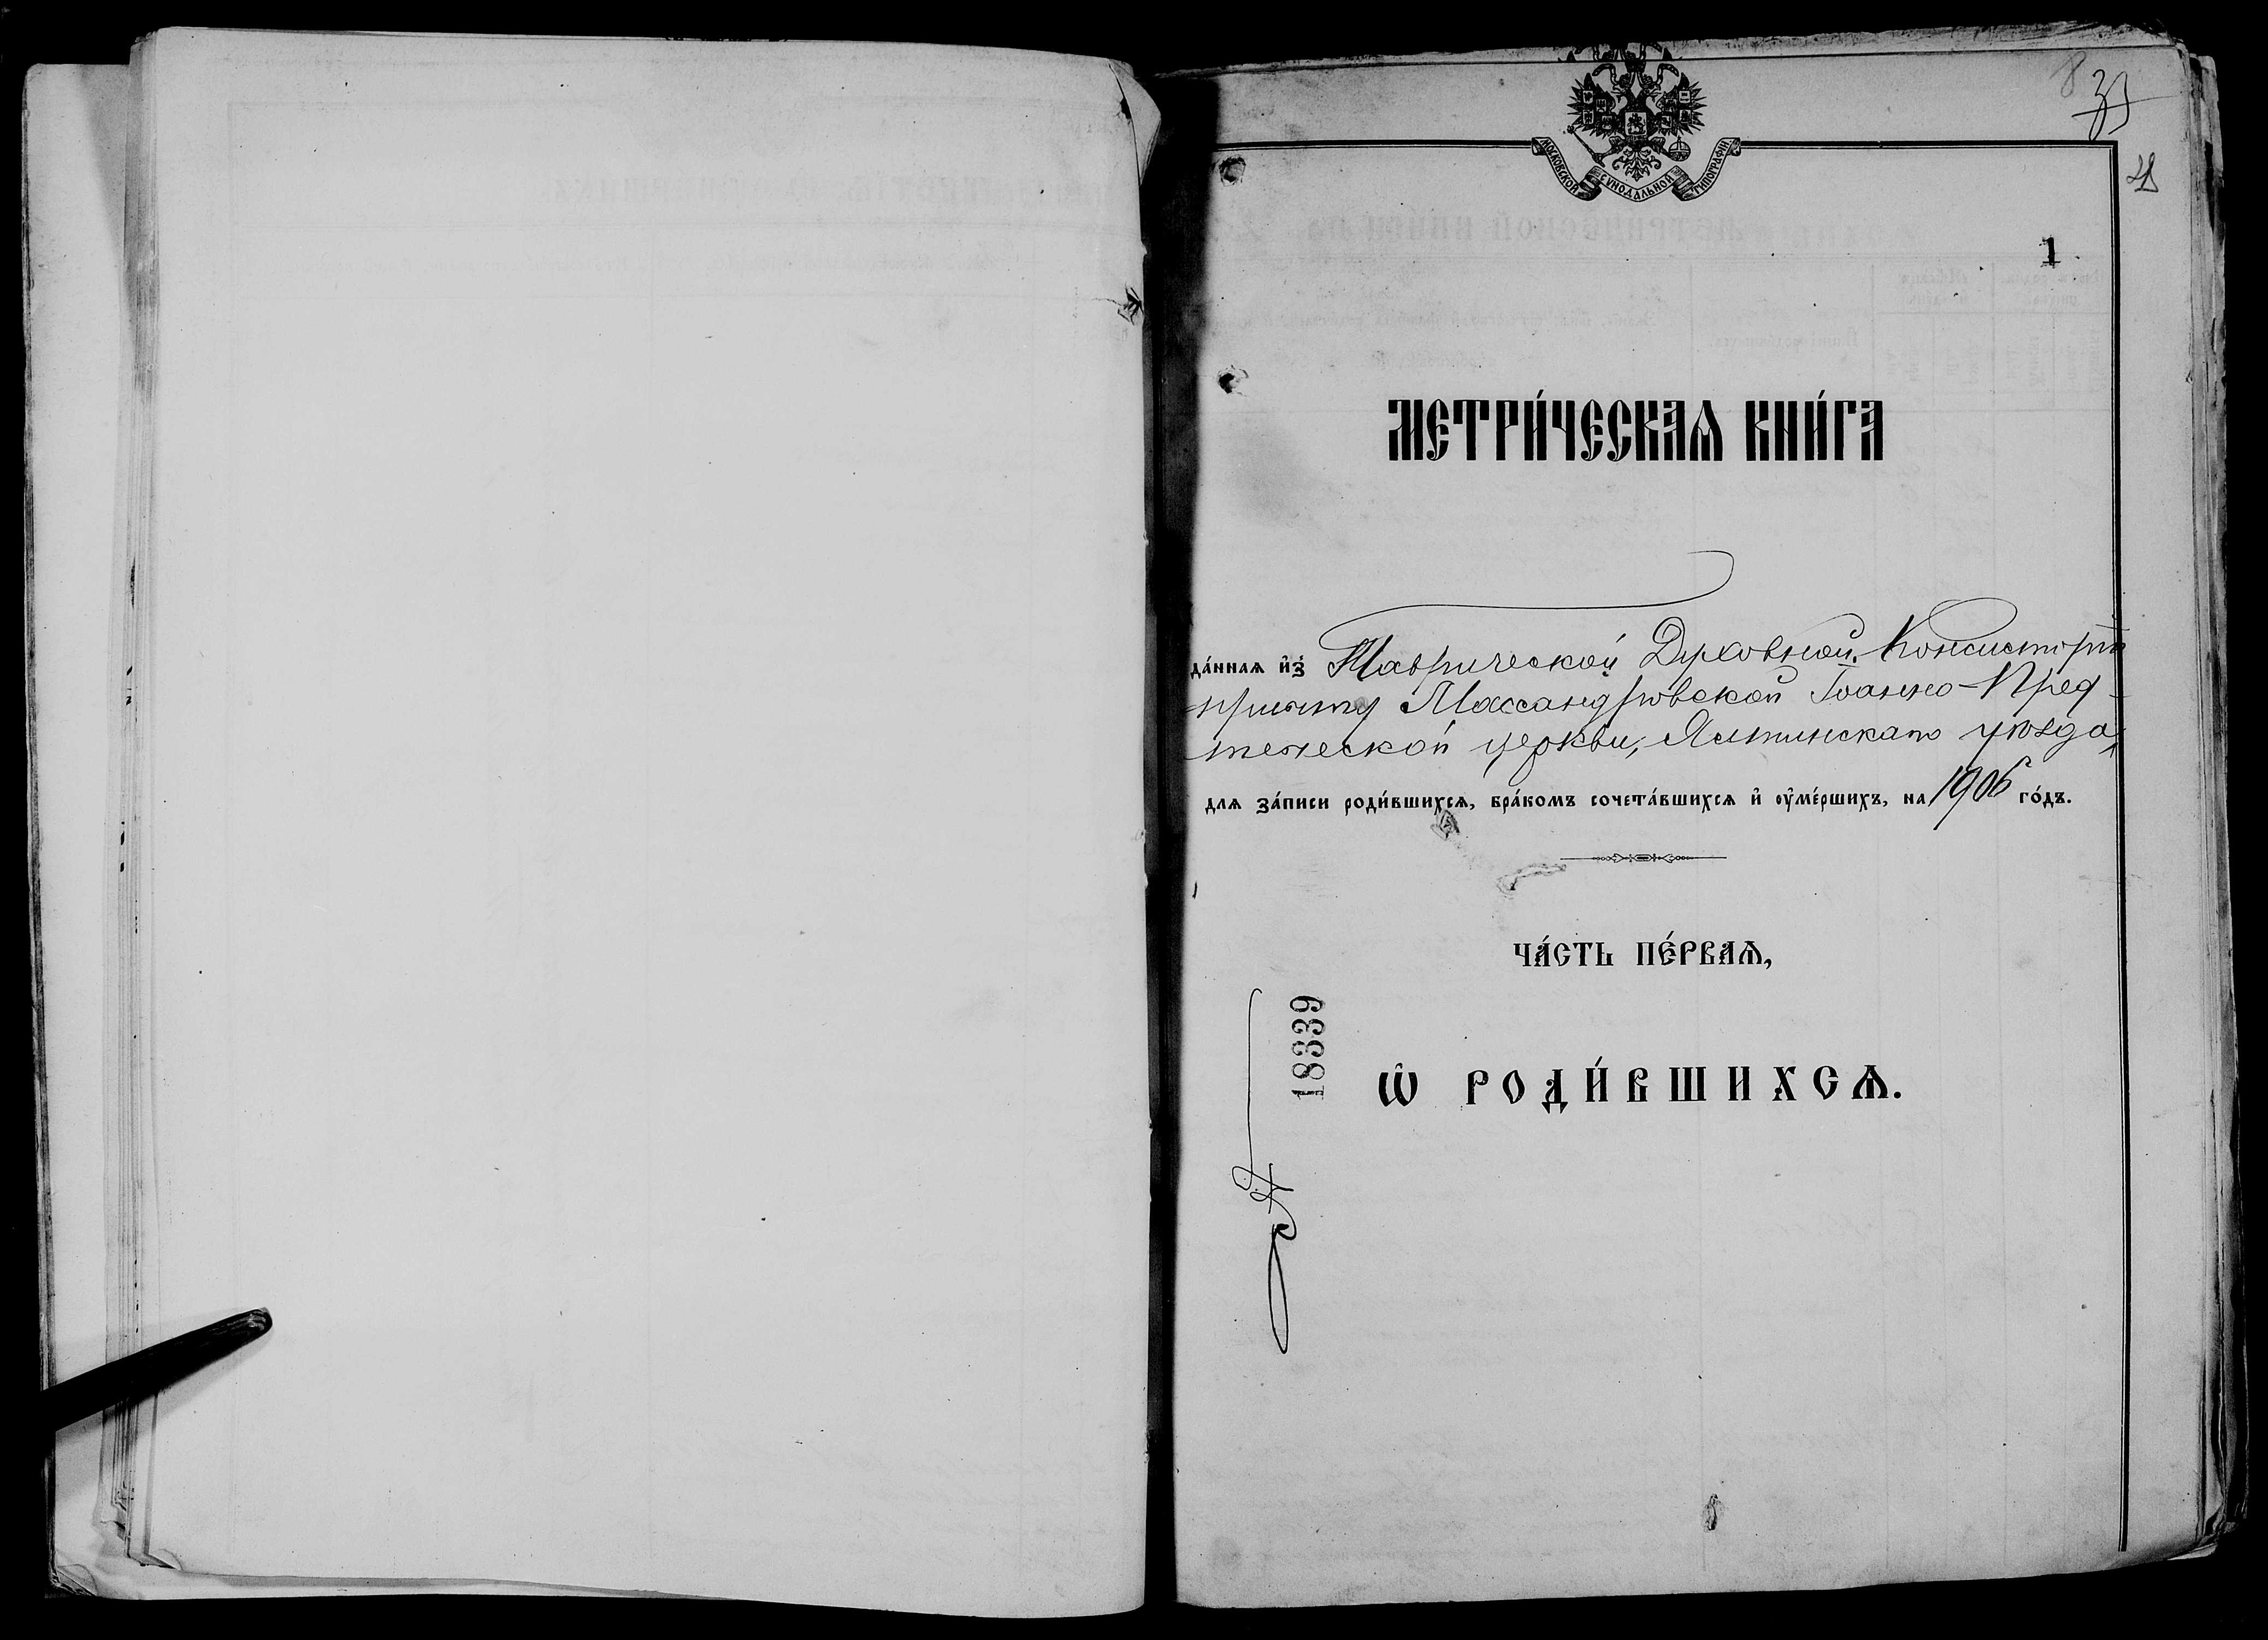 МОСКОВСКОЙ СѴНОДАЛЬНОЙ ТИПОГРАФІИ
8
33
1
МЕТРИ́ЧЕСКАѦ КНИ́ГА
да́ннаѧ и҆з̾ Таврической Духовной Консисторіи
причту Массандровской Іоанно-Пред-
теческой церкви, Ялтинскаго уѣзда,
длѧ за́писи роди́вшихсѧ, бра́комъ сочета́вшихсѧ и҆ оу҆ме́ршихъ, на 1906 го́дъ.
ЧА́СТЬ ПЕ́РВАѦ,
Ѡ҆ РОДИ́ВШИХСѦ.
18339